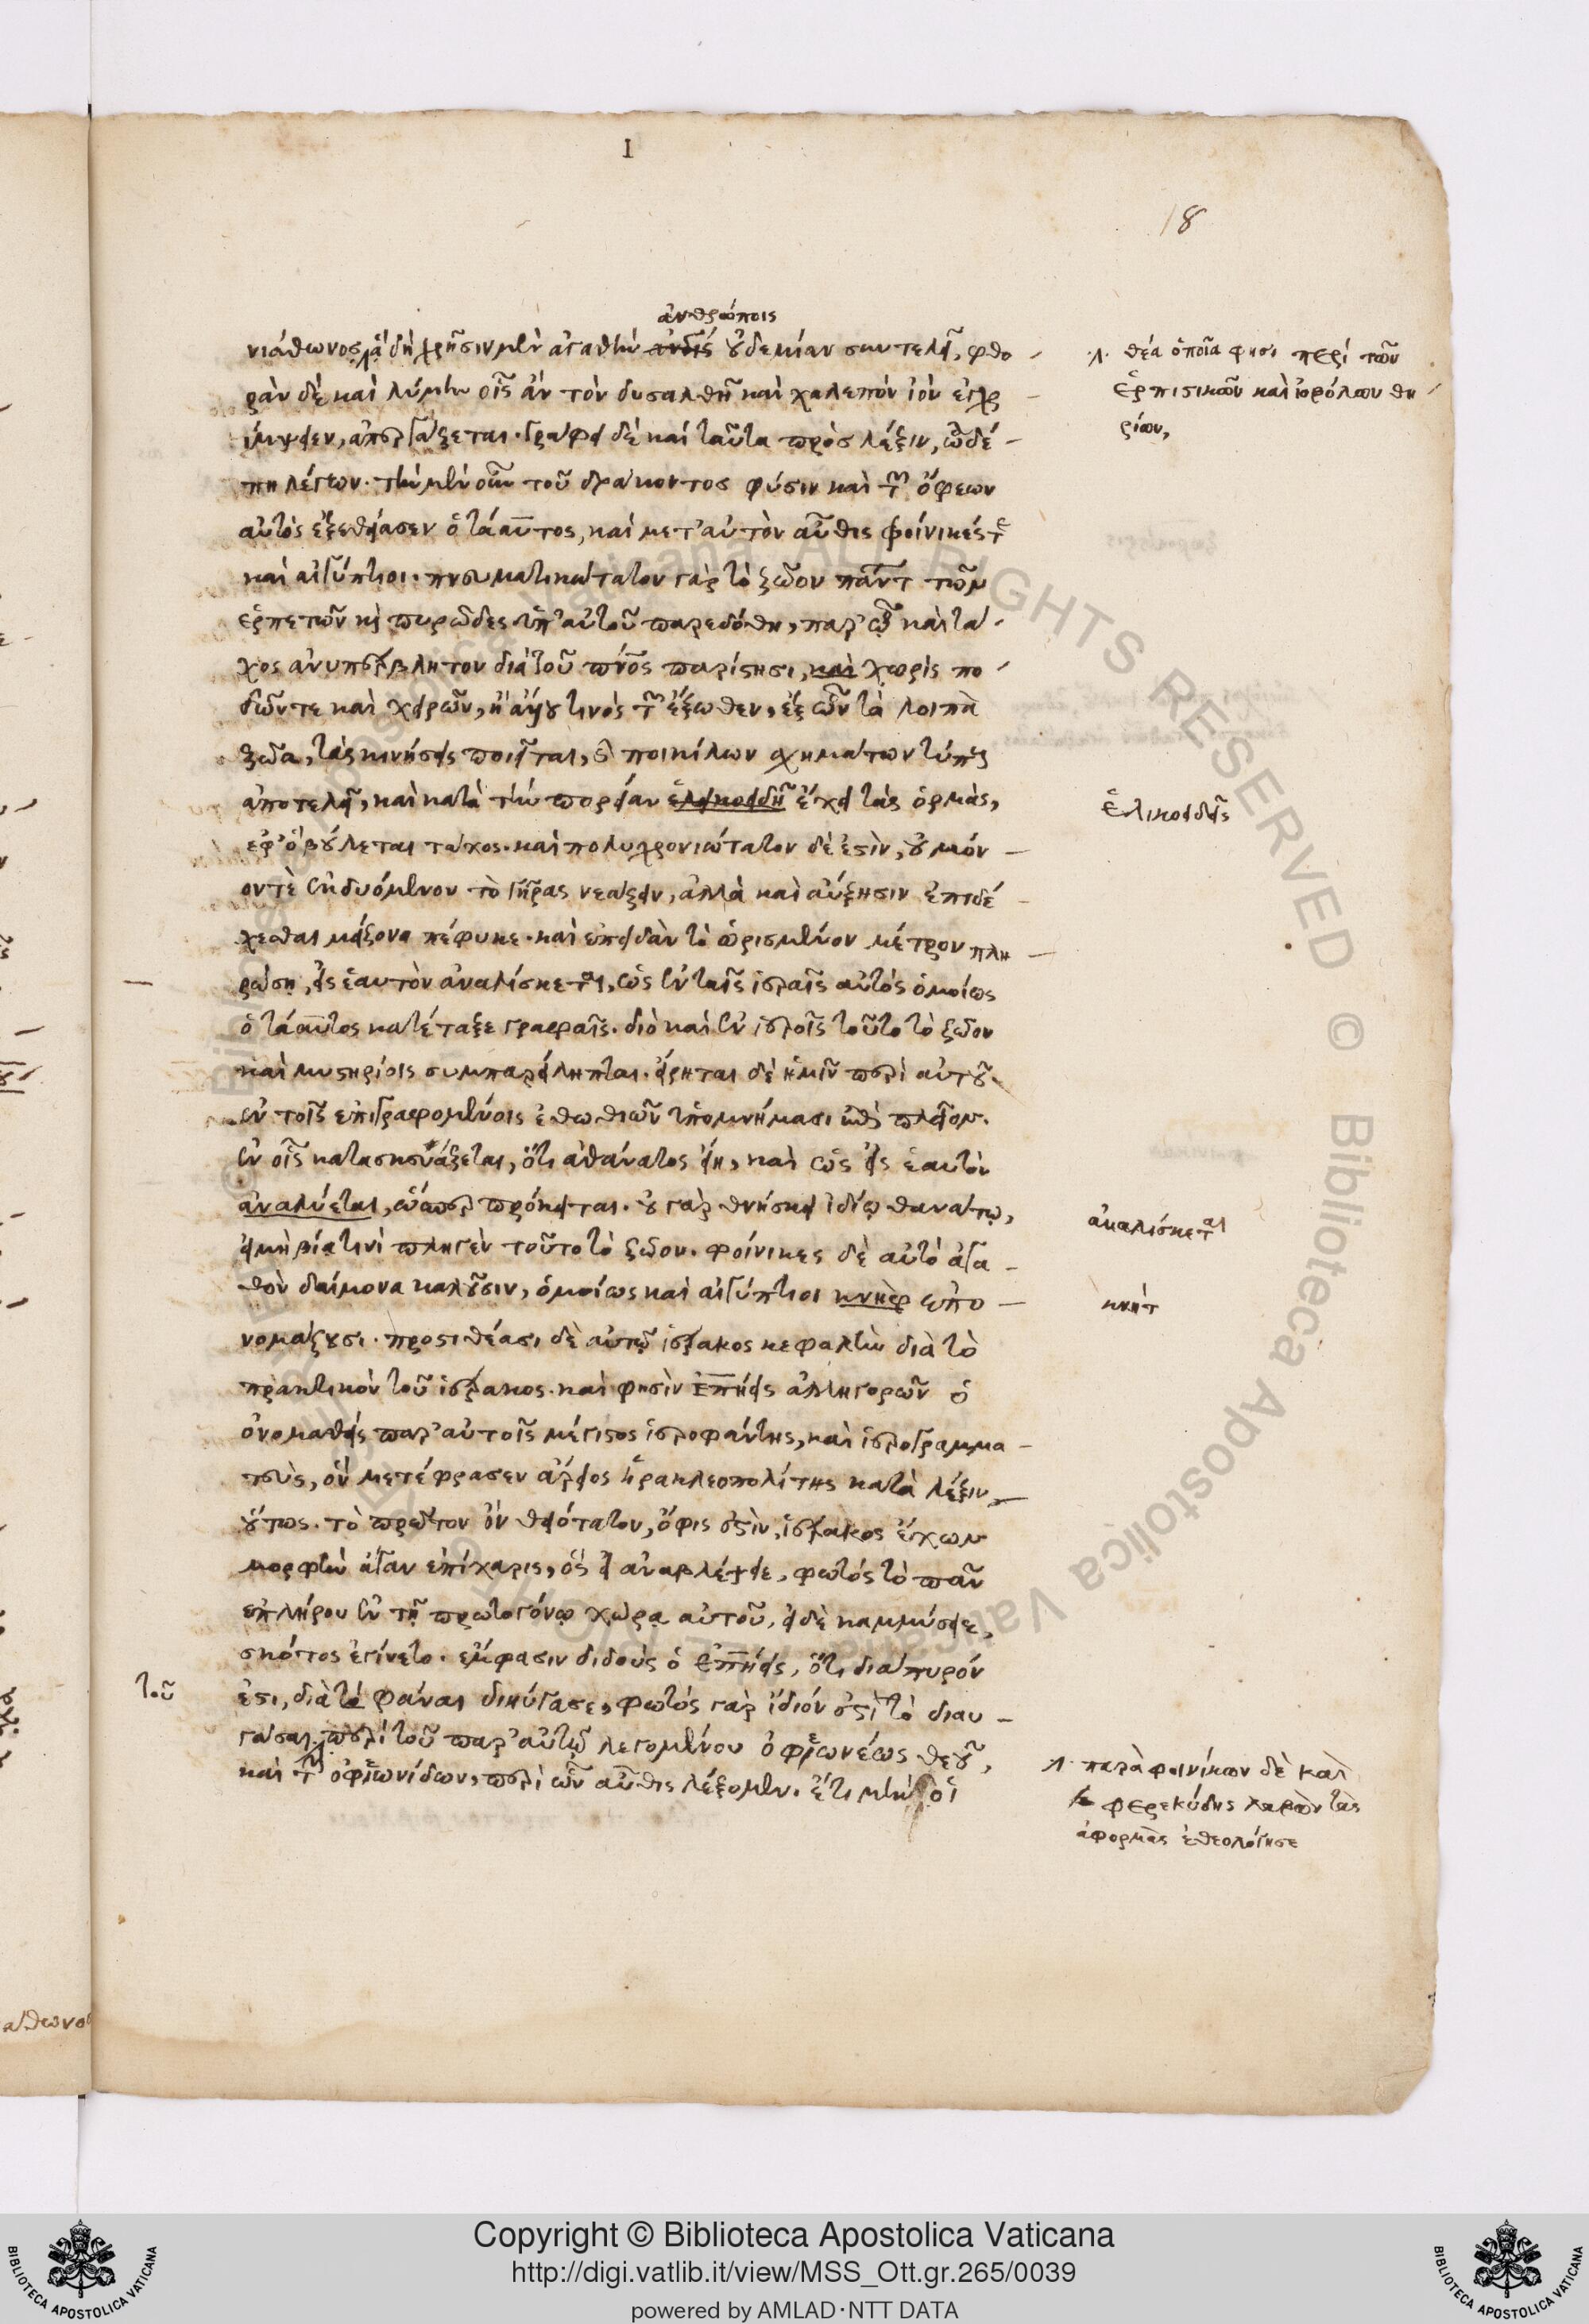 I
18
ἀνθρώποις
νιάθωνος, ἃ δὴ χρῆσιν μὲν ἀγαθὴν ἀνοις οὐδεμίαν συντελεῖ, φθο
ρὰν δὲ καὶ λύμην οἷς ἂν τὸν δυσαλθῆ καὶ χαλεπὸν ἰὸν ἐγχρ
ίμψειεν, ἀπεργάζεται. γράφει δὲ καὶ ταῦτα πρὸς λέξιν, ὧδέ
πη λέγων. τὴν μὲν οὖν τοῦ δράκοντος φύσιν καὶ τῶν ὄφεων
αὐτὸς ἐξεθείασεν ὁ τάαυτος, καὶ μετ' αὐτὸν αὖθις φοίνικές τε
καὶ αἰγύπτιοι. πνευματικώτατον γὰρ τὸ ζῶον πάντων τῶν
ἑρπετῶν καὶ πυρῶδες ὑπ' αὐτοῦ παρεδόθη, παρ' ὃ καὶ τά
χος ἀνυπέρβλητον διὰ τοῦ πνς παρίστησι, καὶ χωρὶς πο
δῶν τε καὶ χειρῶν, ἢ ἄλλου τινὸς τῶν ἔξωθεν, ἐξ ὧν τὰ λοιπὰ
ζῶα, τὰς κινήσεις ποιεῖται, καὶ ποικίλων σχημάτων τύπους
ἀποτελεῖ, καὶ κατὰ τὴν πορείαν ἑλικοειδῆ ἔχει τὰς ὁρμὰς,
ἐφ' ὃ βούλεται τάχος. καὶ πολυχρονιώτατον δέ ἐστιν, οὐ μόν
ον τὲ ἐκδυόμενον τὸ γῆρας νεάζειν, ἀλλὰ καὶ αὔξησιν ἐπιδέ
χεσθαι μείζονα πέφυκε. καὶ ἐπειδὰν τὸ ὡρισμένον μέτρον πλη
ρώσῃ, εἰς ἑαυτὸν ἀναλίσκεται, ὡς ἐν ταῖς ἱεραῖς αὐτὸς ὁμοίως
ὁ τάαυτος κατέταξε γραφαῖς. διὸ καὶ ἐν ἱεροῖς τοῦτο τὸ ζῶον
καὶ μυστηρίοις συμπαρείληπται. εἴρηται δὲ ἡμῖν περὶ αὐτοῦ
ἐν τοῖς ἐπιγραφομένοις ἐθωθιῶν ὑπομνήμασι ἐπὶ πλεῖον.
ἐν οἷς κατασκευάζεται, ὅτι ἀθάνατος εἴη, καὶ ὡς εἰς ἑαυτὸν
ἀναλύεται, ὥσπερ πρόκειται. οὐ γὰρ θνήσκει ἰδίῳ θανάτῳ,
εἰ μὴ βίᾳ τινὶ πληγὲν τοῦτο τὸ ζῶον. φοίνικες δὲ αὐτὸ ἀγα
θὸν δαίμονα καλοῦσιν, ὁμοίως καὶ αἰγύπτιοι κνὴφ ἐπο
νομάζουσι. προστιθέασι δὲ αὐτῷ ἱέρακος κεφαλὴν διὰ τὸ
πρακτικὸν τοῦ ἱέρακος. καὶ φησὶν ἐπήεις ἀλληγορῶν ὁ
ὀνομασθεὶς παρ' αὐτοῖς μέγιστος ἱεροφάντης, καὶ ἱερογραμμα
τεὺς, ὃν μετέφρασεν ἄρειος ἡρακλεοπολίτης κατὰ λέξιν
οὕτως. τὸ πρῶτον ὂν θειότατον, ὄφις ἐστὶν, ἱέρακος ἔχων
μορφὴν ἄγαν ἐπίχαρις, ὃς εἰ ἀναβλέψειε, φωτὸς τὸ πᾶν
ἐπλήρου ἐν τῇ πρωτογόνῳ χώρᾳ αὐτοῦ, εἰ δὲ καμμύσειε,
σκότος ἐγίνετο. ἔμφασιν διδοὺς ὁ ἐπήεις, ὅτι διάπυρόν
ἐστι, διὰ τὸ φάναι διηύγασε, φωτὸς γὰρ ἴδιόν ἐστὶ τὸ διαυ
γάσαι. περὶ τοῦ παρ' αὐτῷ λεγομένου ὀφιονέως θεοῦ,
καὶ τῶν ὀφιονίδων, περὶ ὧν αὖθις λέξομεν. ἔτι μὴν οἱ
τοῦ
λ. θέα ὁποῖα φησι περὶ τῶν
ἑρπιστικῶν καὶ ἰοβόλων θη
ρίων,
ἑλικοειδεῖς
ἀναλίσκεται
κνήφ
λ. παρὰ φοινίκων δὲ καὶ
φερεκύδης λαβὼν τὰς
ἀφορμὰς ἐθεολόγησε
Copyright © Biblioteca Apostolica Vaticana
http://digi.vatlib.it/view/MSS_Ott.gr.265/0039
powered by AMLAD·NTT DATA